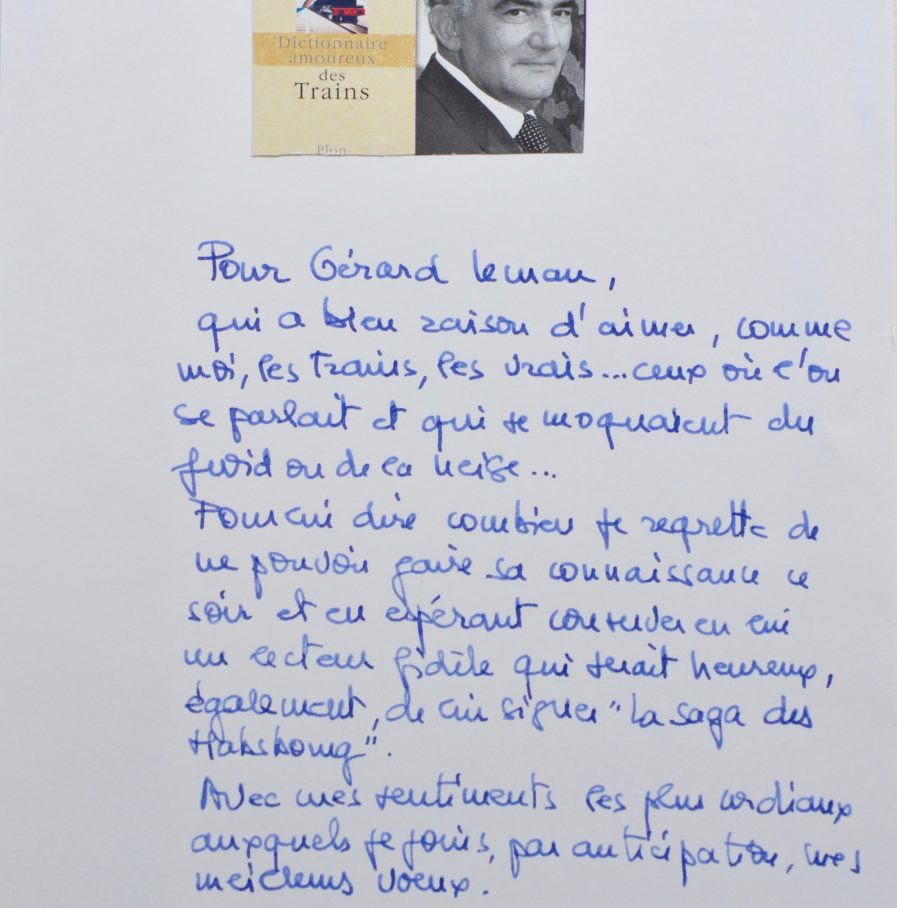 Dictionnaire
amoureux
des
Trains
Plon
Pour Gérard Leman,
qui a bien raison d'aimer, comme
moi, les trains, les vrais... ceux où l'on
se parlait et qui se moquaient du
froid ou de la neige...
Pour lui dire combien je regrette de
ne pouvoir faire sa connaissance ce
soir et en espérant conserver en lui
un lecteur fidèle qui serait heureux,
également, de lui signer "La saga des
Habsbourg".
Avec mes sentiments les plus cordiaux
auxquels je joins, par anticipation, mes
meilleurs voeux.